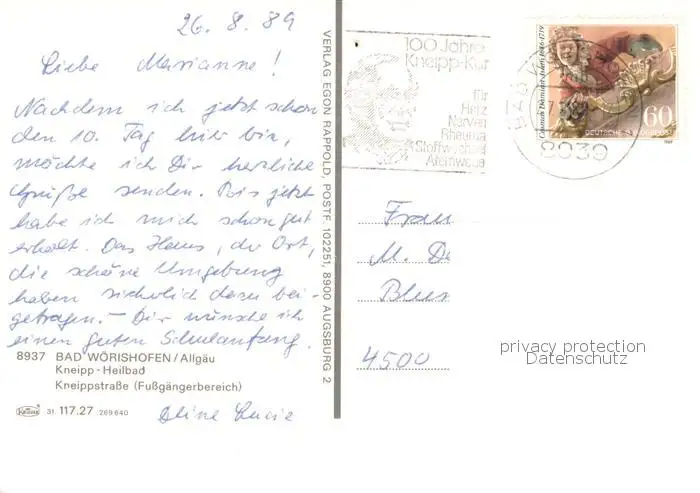 26. 8. 89
Liebe Marianne!
Nachdem ich jetzt schon
den 10. Tag hier bin,
möchte ich Dir herzliche
Grüße senden. Bis jetzt
habe ich mich schon gut
erholt. Das Haus, der Ort,
die schöne Umgebung
haben sicherlich dazu bei-
getragen. – Dir wünsche ich
einen guten Schulanfang.
8937 BAD WÖRISHOFEN/Allgäu
Kneipp-Heilbad
Kneippstraße (Fußgängerbereich)
31. 117.27 269640
Deine Lucie
VERLAG EGON RAPPOLD, POSTF. 102251, 8900 AUGSBURG 2
100 Jahre
Kneipp-Kur
für
Herz
Nerven
Rheuma
Stoffwechsel
Atemwege
BAD
8939
60
DEUTSCHE BUNDESPOST
Frau
M. De
Blu
4500
privacy protection
Datenschutz